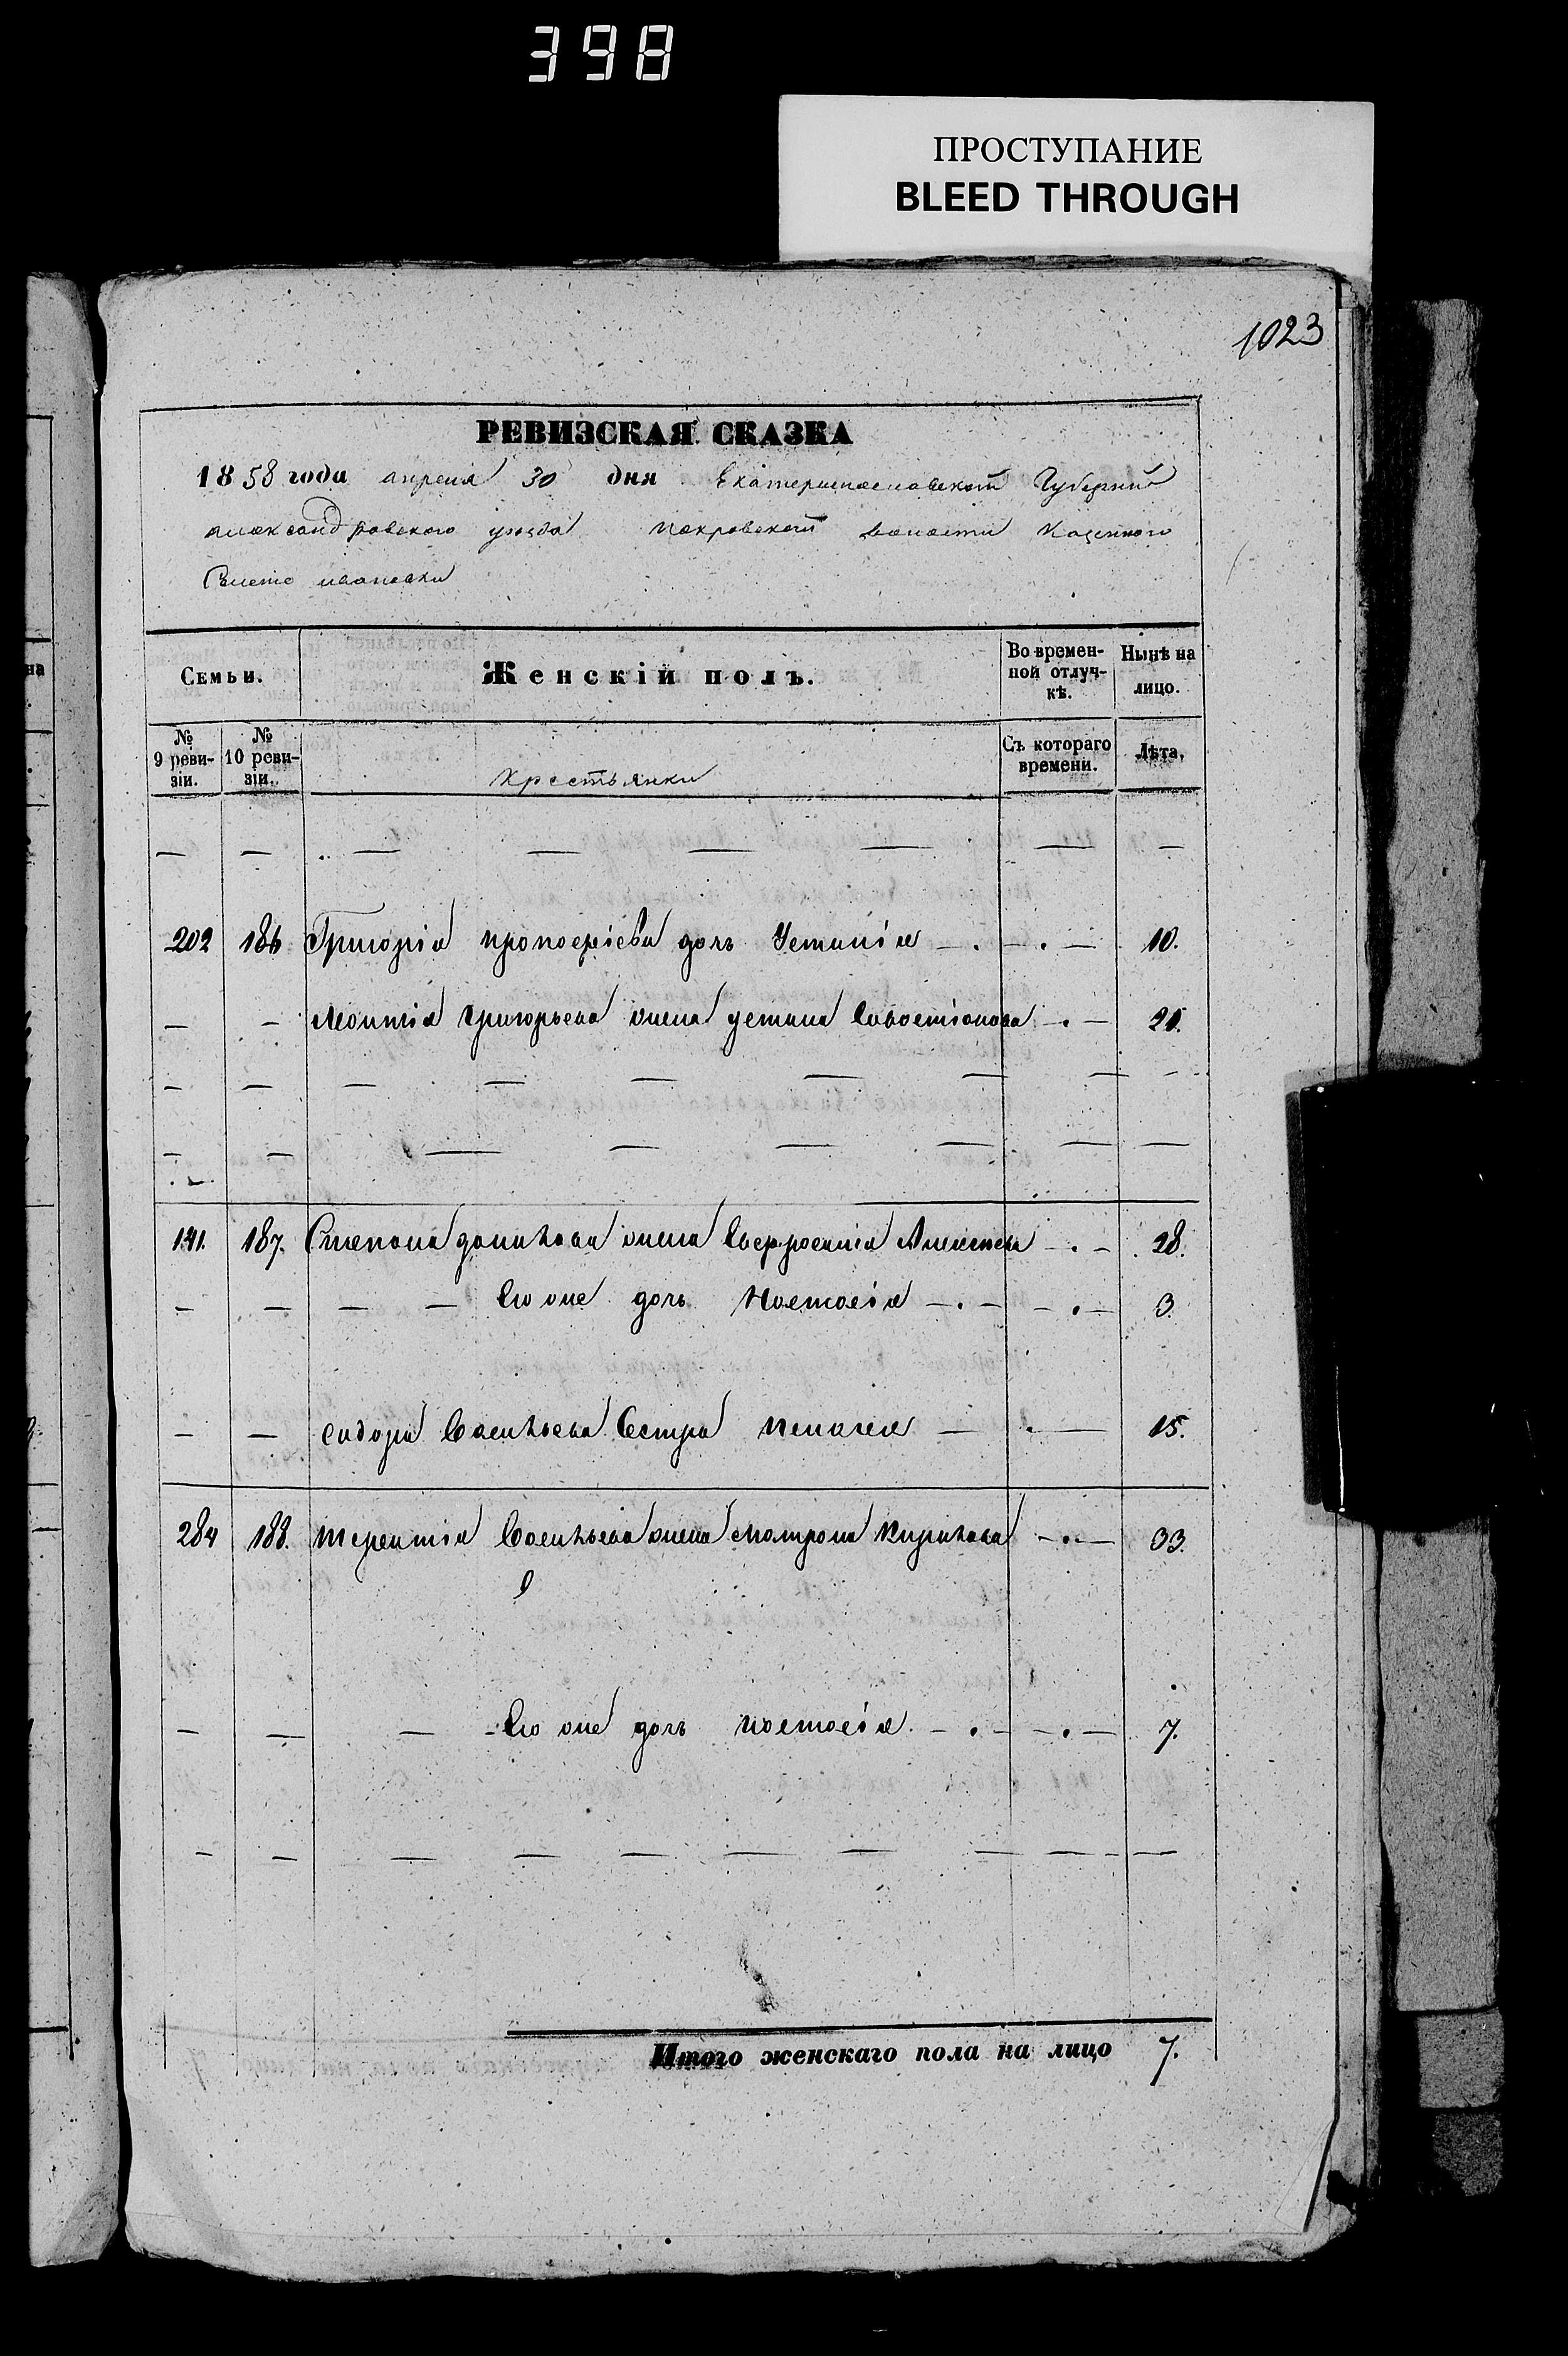 398
ПРОСТУПАНИЕ
BLEED THROUGH
1023
РЕВИЗСКАЯ СКАЗКА
1858 года апреля 30 дня Екатеринославской Губернии
александровского уезда покровской волости Казенного
Селения ивановки
Семьи. Женскій полъ. Во времен- Нынѣ на
ной отлуч- лицо.
кѣ.
№ № Съ котораго Лѣта.
9 реви- 10 реви- времени.
зіи. зіи. крестьянки
— — — — — — — —
202 186 Григорія дочь Устинія — . — . — 10.
— — Леонтія Григорьева жена устина — . —
— — — — — — — — —
— — — — — — — —
141. 187. Степана данилова жена — . — 28.
— — — — Его же дочь Настасія — . — — . — 3.
— — сидора Васильева Сестра — . — 15.
284 188. терентія Васильева жена матрона Кирилова — . — 33.
— — — Его же дочь настасія — . — — . — 7.
— — — — — — — — — —
Итого женскаго пола на лицо 7.